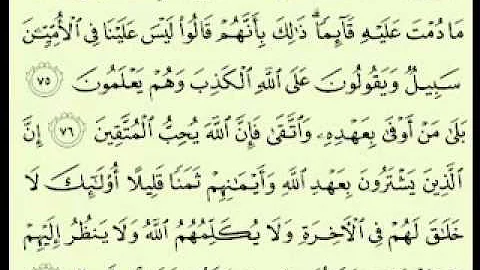 مَا دُمْتَ عَلَيْهِ قَآئِمًا ۗ ذَٰلِكَ بِأَنَّهُمْ قَالُوا۟ لَيْسَ عَلَيْنَا فِى ٱلْأُمِّيِّـۧنَ
سَبِيلٌ وَيَقُولُونَ عَلَى ٱللَّهِ ٱلْكَذِبَ وَهُمْ يَعْلَمُونَ ٧٥
بَلَىٰ مَنْ أَوْفَىٰ بِعَهْدِهِۦ وَٱتَّقَىٰ فَإِنَّ ٱللَّهَ يُحِبُّ ٱلْمُتَّقِينَ ٧٦ إِنَّ
ٱلَّذِينَ يَشْتَرُونَ بِعَهْدِ ٱللَّهِ وَأَيْمَٰنِهِمْ ثَمَنًا قَلِيلًا أُو۟لَٰٓئِكَ لَا
خَلَٰقَ لَهُمْ فِى ٱلْءَاخِرَةِ وَلَا يُكَلِّمُهُمُ ٱللَّهُ وَلَا يَنظُرُ إِلَيْهِمْ